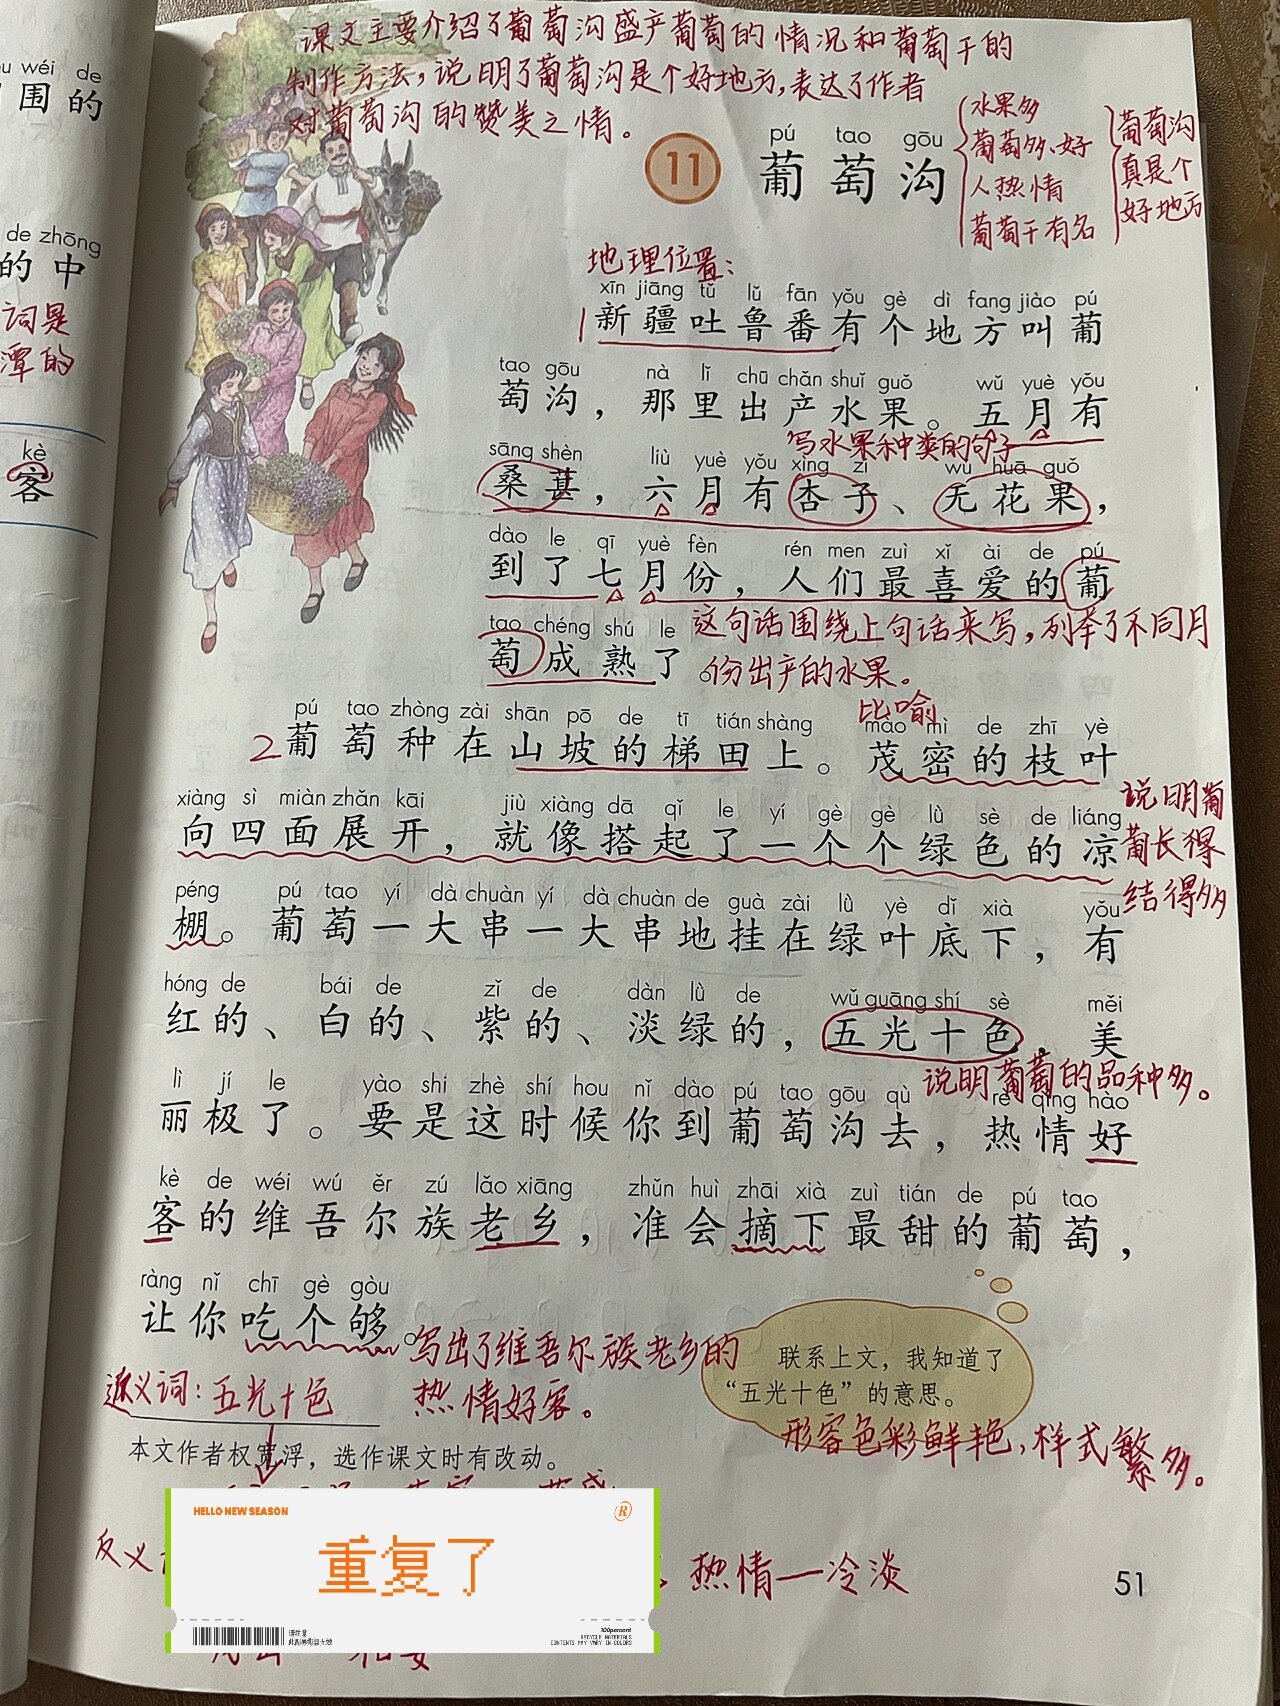 课文主要介绍了葡萄沟盛产葡萄的情况和葡萄干的
制作方法，说明了葡萄沟是个好地方，表达了作者
对葡萄沟的赞美之情。
wéi de
围的
de zhōng
的中
词是
潭的
kè
客
pú tao gōu
11 葡萄沟
水果多
葡萄多、好
人热情
葡萄干有名
葡萄沟
真是个
好地方
地理位置：
xīn jiāng tǔ lǔ fān yǒu gè dì fang jiào pú
1 新疆吐鲁番有个地方叫葡
tao gōu nà lǐ chū chǎn shuǐ guǒ wǔ yuè yǒu
萄沟，那里出产水果。五月有
写水果种类的句子
sāng shèn liù yuè yǒu xìng zi wú huā guǒ
桑葚，六月有杏子、无花果，
dào le qī yuè fèn rén men zuì xǐ ài de pú
到了七月份，人们最喜爱的葡
tao chéng shú le
萄成熟了。
这句话围绕上句话来写，列举了不同月
份出产的水果。
比喻
pú tao zhòng zài shān pō de tī tián shàng mào mì de zhī yè
2 葡萄种在山坡的梯田上。茂密的枝叶
xiàng sì miàn zhǎn kāi jiù xiàng dā qǐ le yí gè gè lǜ sè de liáng
向四面展开，就像搭起了一个个绿色的凉
说明葡
萄长得
结得多
péng pú tao yí dà chuàn yí dà chuàn de guà zài lǜ yè dǐ xià yǒu
棚。葡萄一大串一大串地挂在绿叶底下，有
hóng de bái de zǐ de dàn lǜ de wǔ guāng shí sè měi
红的、白的、紫的、淡绿的，五光十色，美
说明葡萄的品种多。
lì jí le yào shi zhè shí hou nǐ dào pú tao gōu qù rè qíng hào
丽极了。要是这时候你到葡萄沟去，热情好
kè de wéi wú ěr zú lǎo xiāng zhǔn huì zhāi xià zuì tián de pú tao
客的维吾尔族老乡，准会摘下最甜的葡萄，
ràng nǐ chī gè gòu
让你吃个够。
写出了维吾尔族老乡的
热情好客。
联系上文，我知道了
“五光十色”的意思。
形容色彩鲜艳，样式繁多。
近义词：五光十色
本文作者权宽浮，选作课文时有改动。
HELLO NEW SEASON
R
重复了
100percent
RECYCLE MATERIALS
CONTENTS MAY VARY IN COLORS
反义
热情—冷淡
51